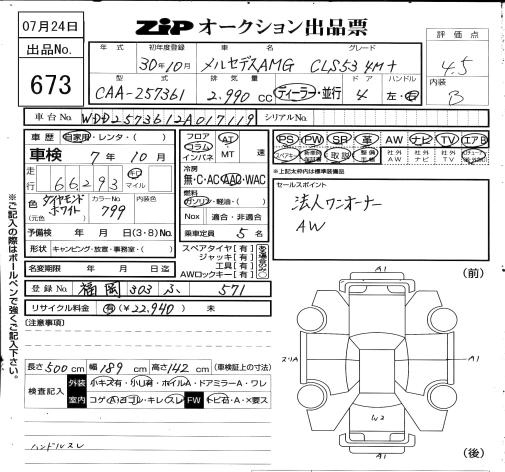 07月24日
ZiP オークション出品票
出品No.
673
年式 初年度登録 車名 グレード
30年10月 メルセデスAMG CLS53 4M+
型式 排気量 ドア ハンドル
CAA-257361 2.990 cc ディーラー・並行 4 左・右
評価点
4.5
内装
B
車台No. WDD2573612A017119 シリアルNo.
車歴 自家用・レンタ・( )
車検 7年10月
走行 66293 km マイル
色 (元色) ダイヤモンドホワイト カラーNo. 799 内装色
予備検 年 月 日(3・8)No.
形状 キャンピング・放置・事務室・( )
名変期限 年 月 日迄
フロア コラム インパネ AT MT 速
冷房
無・C・AC・AAC・WAC
燃料
ガソリン・軽油・( )
Nox 適合・非適合
乗車定員 5 名
スペアタイヤ [有]
ジャッキ [有]
工具 [有]
AWロックキー [有]
PS PW SR 革 AW ナビ TV エアB
取説 社外AW 社外ナビ 社外TV
*上記太枠内は標準装備品
セールスポイント
法人ワンオーナー
AW
登録No. 福岡 303 ふ 571
リサイクル料金 有(¥22,940) 未
[注意事項]
長さ 500 cm 幅 189 cm 高さ 142 cm (車検証上の寸法)
検査記入 外装 小キズ有・小U有・ホイルA・ドアミラーA・ワレ
室内 コゲ(A)・ヨゴレ・キレ・スレ FW トビ石・A・X要ス
ハンドルスレ
※ご記入の際はボールペンで強くご記入下さい。
A1
(前)
スリA
A1
A1
(後)